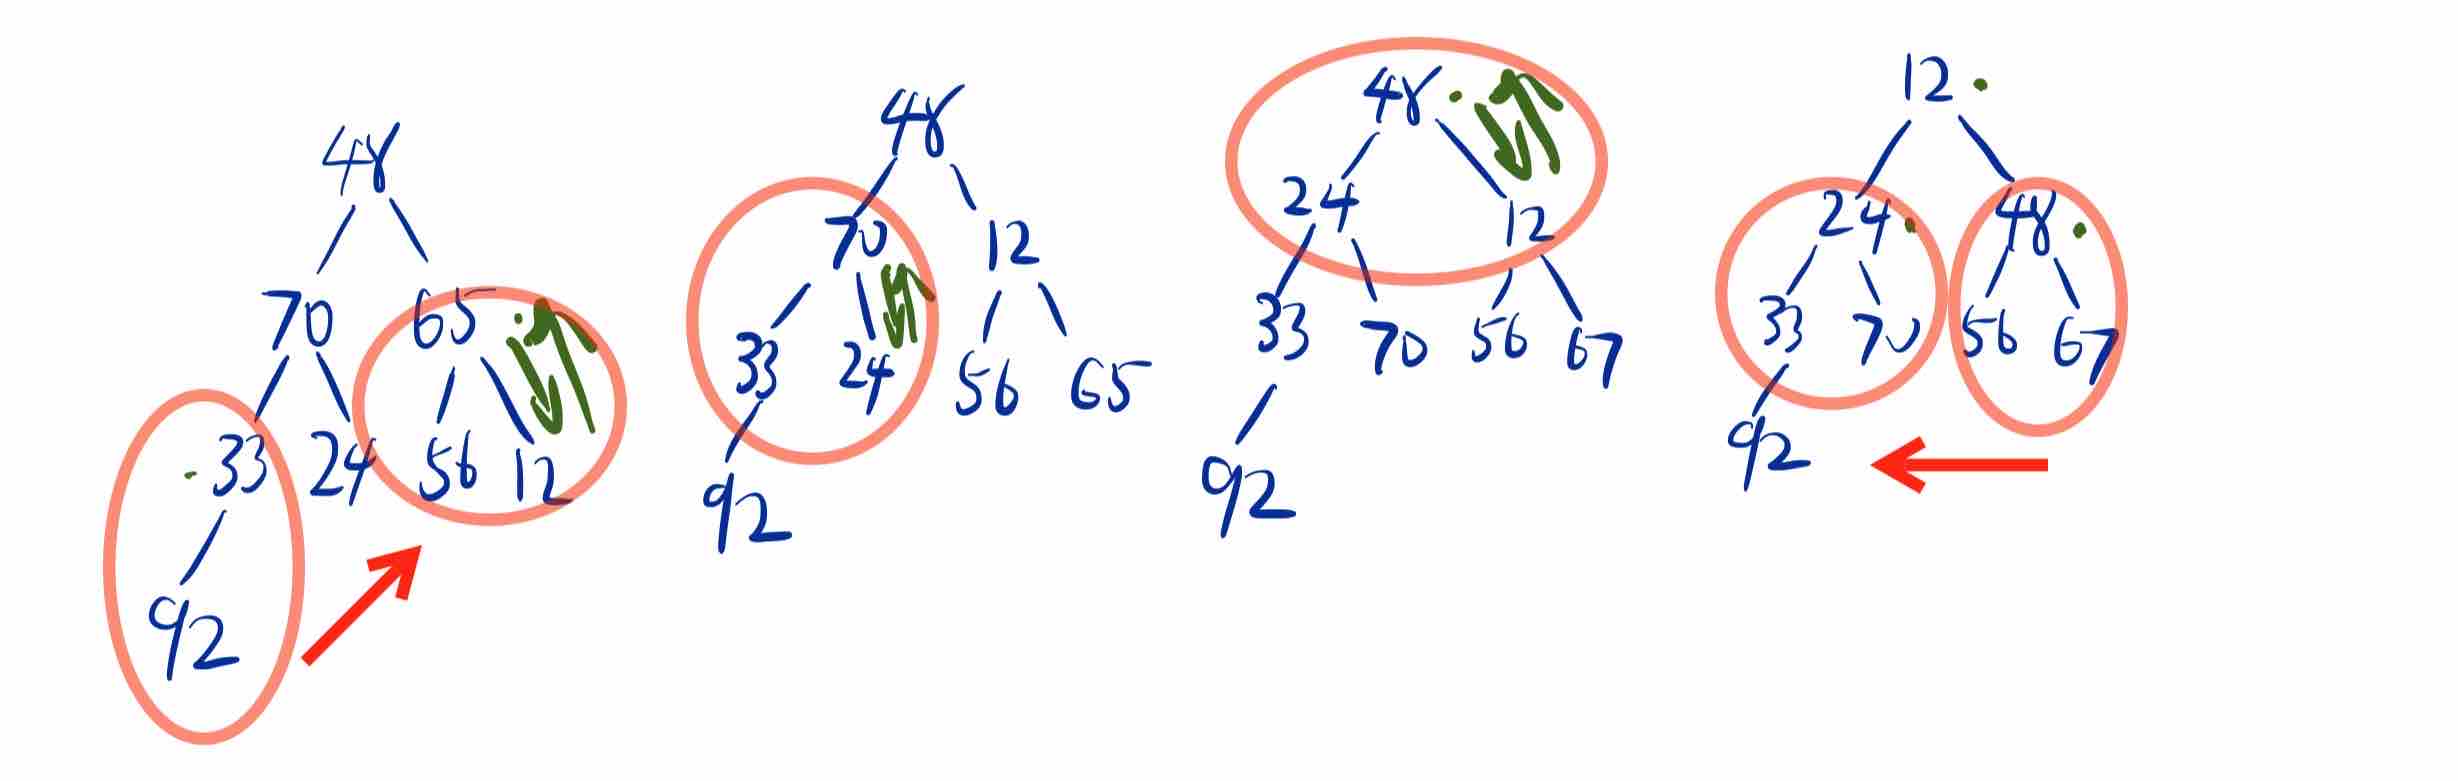 48
70 65
33 24 56 12
92
48
70 12
33 24 56 65
92
48
24 12
33 70 56 67
92
12
24 48
33 70 56 67
92